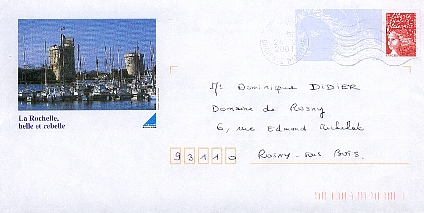 2001
La Rochelle,
belle et rebelle
Mr Dominique DIDIER
Domaine de Rosny
6, rue Edmond Michelet
93110 ROSNY-sous BOIS.